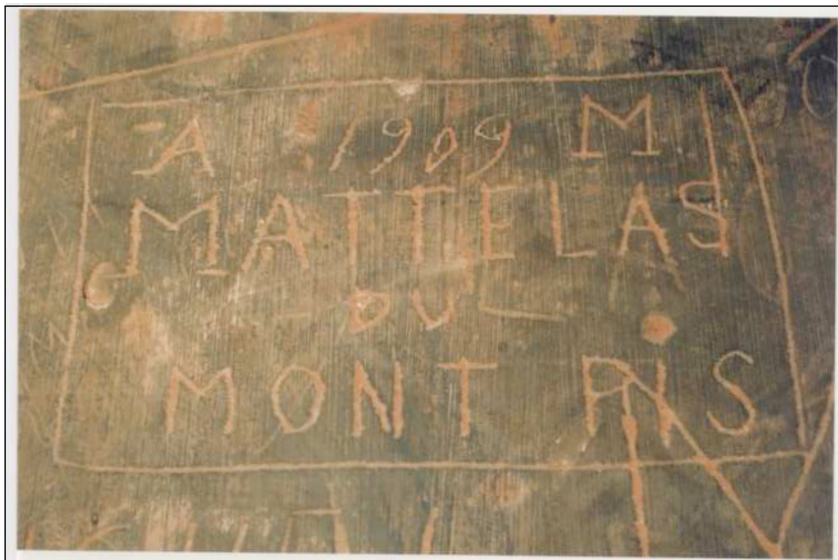 A 1909 M
MATTELAS
DU
MONT PIS